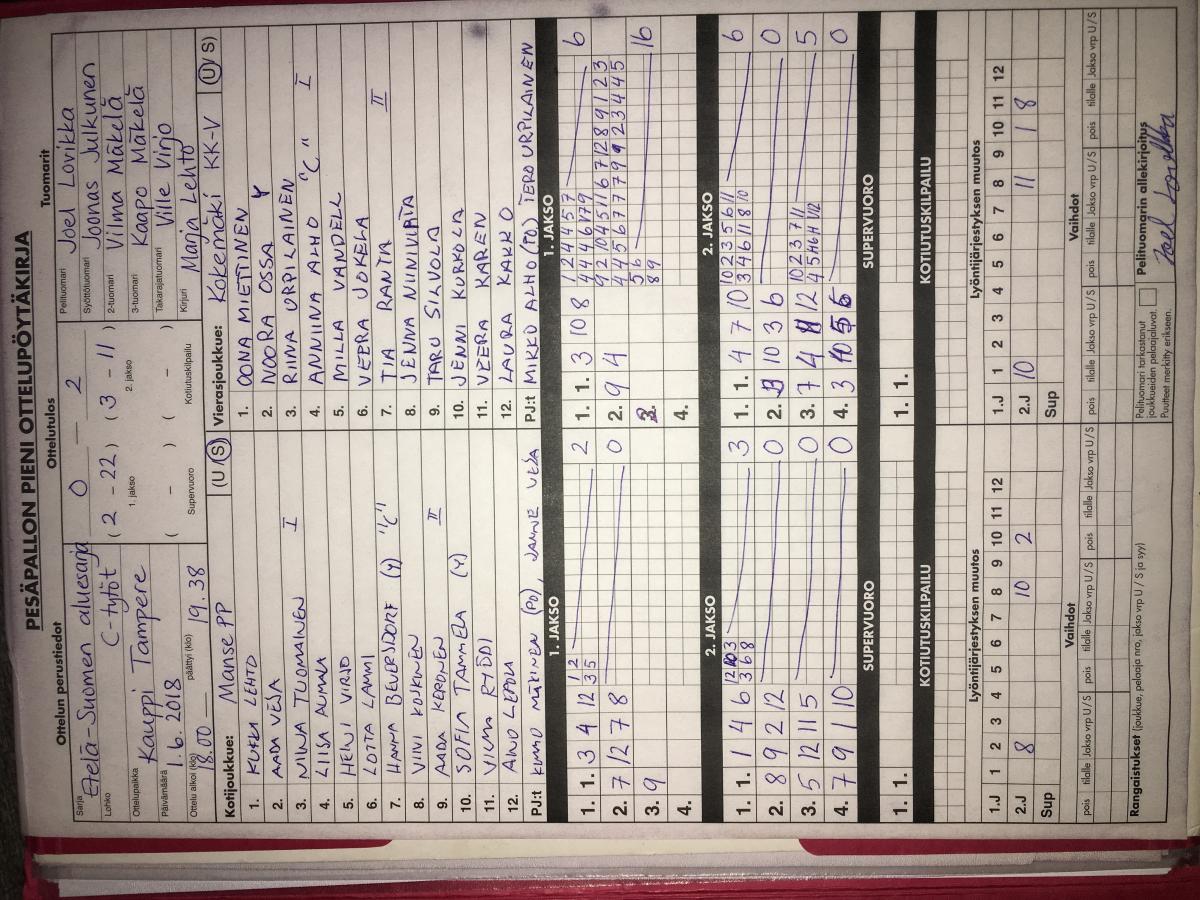 PESÄPALLON PIENI OTTELUPÖYTÄKIRJA
Ottelun perustiedot
Ottelutulos
Tuomarit
Sarja Etelä-Suomen aluesarja
Lohko C-tytöt
Ottelupaikka Kauppi Tampere
Päivämäärä 1.6. 2018
Ottelu alkoi (klo) 18.00 päättyi (klo) 19.38
0 2
( 2 - 22 ) ( 3 - 11 )
1. jakso 2. jakso
( - ) ( - )
Supervuoro Kotiutuskilpailu
Pelituomari Joel Lovikka
Syöttötuomari Joonas Julkunen
2-tuomari Vilma Mäkelä
3-tuomari Kaapo Mäkelä
Takarajatuomari Ville Virjo
Kirjuri Marja Lehto
Kotijoukkue: Manse PP (U / S)
1. KUKKA LEHTO
2. AADA VESA
3. NIINA TUOMAINEN I
4. LIISA AUMALA
5. HEINI VIRJO
6. LOTTA LAMMI
7. HANNA BEVERSDORF (Y) "C"
8. VIIVI KOSKINEN
9. AADA KERONEN II
10. SOFIA TAMMELA (Y)
11. VILMA RYÖDI
12. AINO LEPOLA
PJ:t KIMMO MÄKINEN (PJ), JANNE VESA
Vierasjoukkue: Kokemäki KK-V (U / S)
1. OONA MIETTINEN
2. NOORA OSSA Y
3. RIINA URPILAINEN I
4. ANNIINA ALHO "C"
5. MILLA VANDELL
6. VEERA JOKELA
7. TIA RANTA II
8. JENNA NIINIVIRTA
9. TARU SILVOLA
10. JENNI KURKOLA
11. VEERA KAREN
12. LAURA KAKKO
PJ:t MIKKO ALHO (PJ) TERO URPILAINEN
1. JAKSO
1. 1. 3 4 12 1 2 2
3 5
2. 7 12 7 8 0
3. 9
4.
1. JAKSO
1. 1. 3 10 8 6
2. 9 4
16
4.
2. JAKSO
1. 1. 1 4 6 3
3 6 8
2. 8 9 2 12 0
3. 5 12 11 5 0
4. 7 9 1 10 0
2. JAKSO
1. 1. 4 7 10 10 2 3 5 6 11 6
3 4 6 11 8 10
2. 10 3 6 0
3. 7 4 12 10 2 3 7 11 5
4. 3 0
SUPERVUORO
1. 1.
SUPERVUORO
1. 1.
KOTIUTUSKILPAILU
KOTIUTUSKILPAILU
Lyöntijärjestyksen muutos
1.J 1 2 3 4 5 6 7 8 9 10 11 12
2.J 8 10 2
Sup
Lyöntijärjestyksen muutos
1.J 1 2 3 4 5 6 7 8 9 10 11 12
2.J 10 11 1 8
Sup
Vaihdot
pois tilalle Jakso vrp U / S pois tilalle Jakso vrp U / S pois tilalle Jakso vrp U / S
Vaihdot
pois tilalle Jakso vrp U / S pois tilalle Jakso vrp U / S pois tilalle Jakso vrp U / S
Rangaistukset (joukkue, pelaaja nro, jakso vrp U / S ja syy)
Pelituomari tarkastanut
joukkueiden pelaajaluvat.
Puutteet merkitty erikseen.
Pelituomarin allekirjoitus
Joel Lovikka